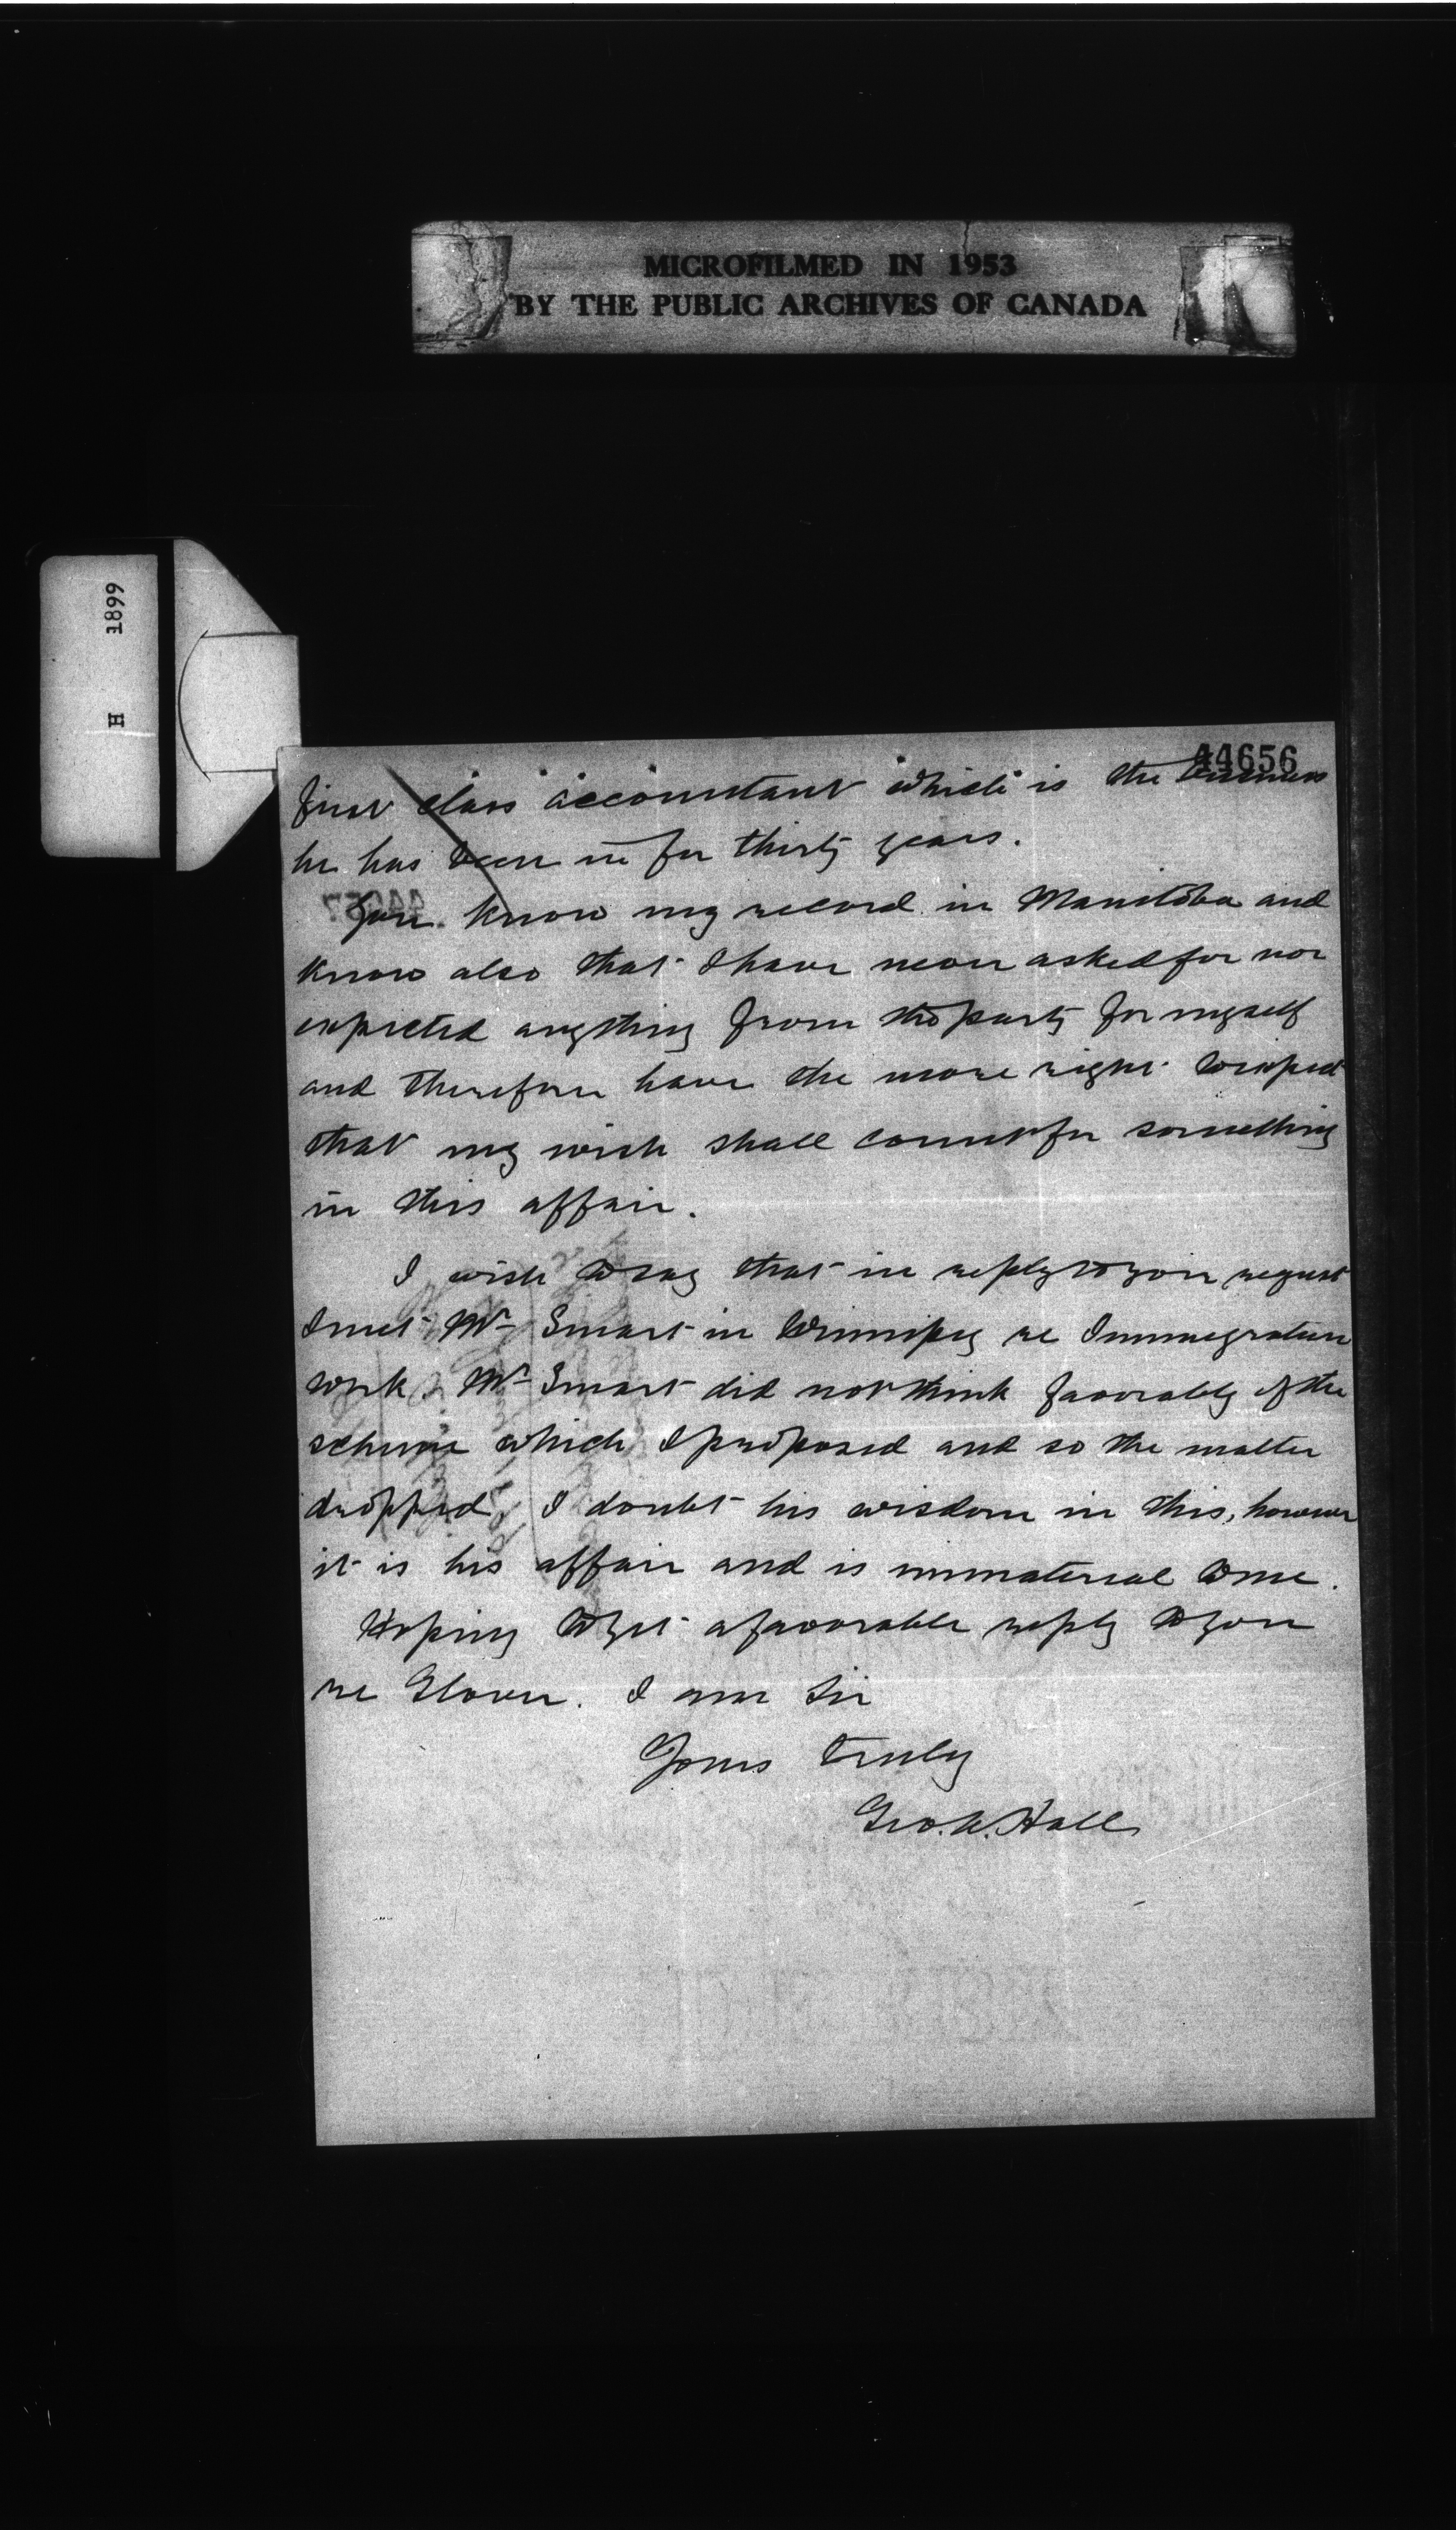 MICROFILMED IN 1953
BY THE PUBLIC ARCHIVES OF CANADA
H 1899
44656
first class accountant which is the business
he has been in for thirty years.
You know my record in Manitoba and
know also that I have never asked for nor
expected anything from the party for myself
and therefore have the more right to expect
that my wish shall count for something
in this affair.
I wish to say that in reply to your request
I met Mr Smart in Winnipeg re Immigration
work. Mr Smart did not think favorably of the
scheme which I proposed and so the matter
dropped, I doubt his wisdom in this, however
it is his affair and is immaterial to me.
Hoping to get a favorable reply to your
re Glover. I am Sir
Yours truly
Geo. W. Hall